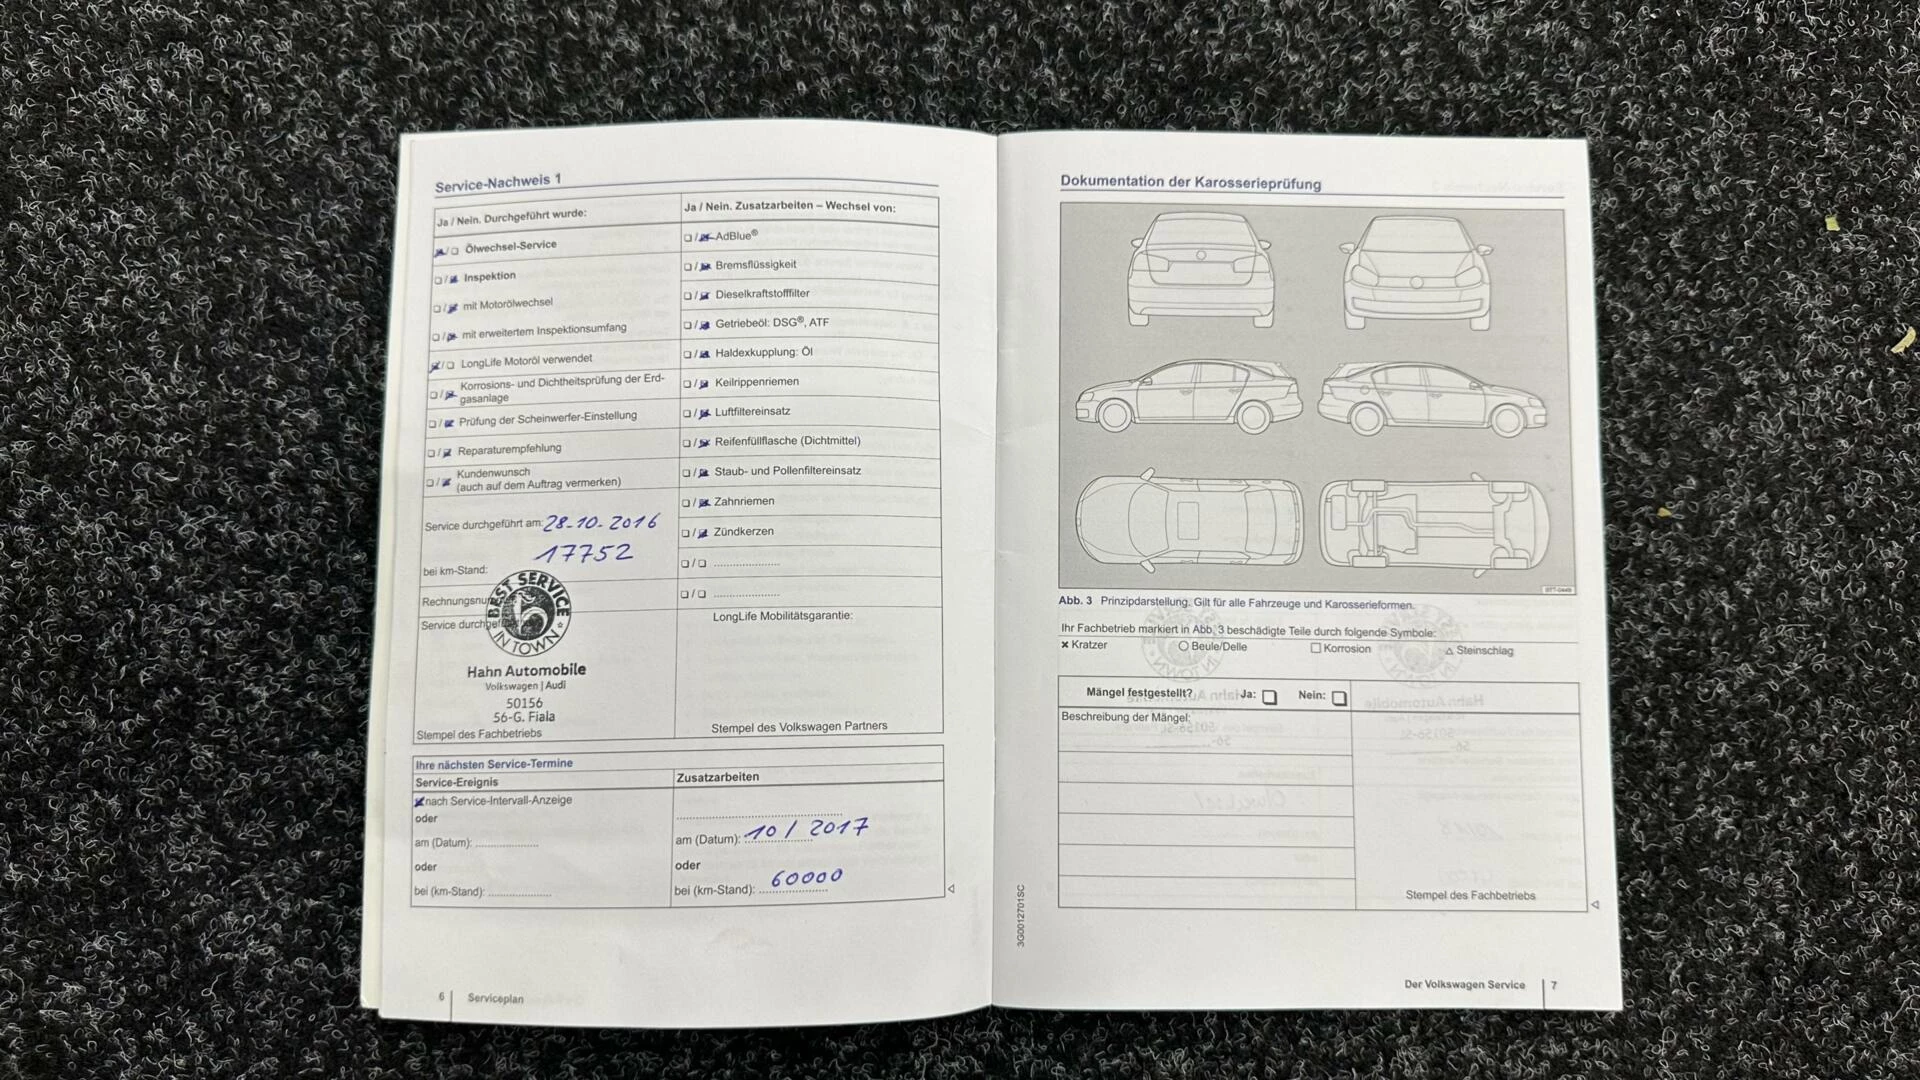 Service-Nachweis 1
Ja / Nein. Durchgeführt wurde:
Ölwechsel-Service
Inspektion
mit Motorölwechsel
mit erweitertem Inspektionsumfang
LongLife Motoröl verwendet
Korrosions- und Dichtheitsprüfung der Erd-
gasanlage
Prüfung der Scheinwerfer-Einstellung
Reparaturempfehlung
Kundenwunsch
(auch auf dem Auftrag vermerken)
Service durchgeführt am: 28-10-2016
17752
bei km-Stand:
BEST SERVICE
IN TOWN
Hahn Automobile
Volkswagen | Audi
50156
56-G. Fiala
Stempel des Fachbetriebs
Ja / Nein. Zusatzarbeiten – Wechsel von:
AdBlue®
Bremsflüssigkeit
Dieselkraftstofffilter
Getriebeöl: DSG®, ATF
Haldexkupplung: Öl
Keilrippenriemen
Luftfiltereinsatz
Reifenfüllflasche (Dichtmittel)
Staub- und Pollenfiltereinsatz
Zahnriemen
Zündkerzen
LongLife Mobilitätsgarantie:
Stempel des Volkswagen Partners
Ihre nächsten Service-Termine
Service-Ereignis
nach Service-Intervall-Anzeige
oder
am (Datum):
oder
bei (km-Stand):
Zusatzarbeiten
am (Datum): 10 / 2017
oder
bei (km-Stand): 60000
6 Serviceplan
Dokumentation der Karosserieprüfung
Abb. 3 Prinzipdarstellung. Gilt für alle Fahrzeuge und Karosserieformen.
Ihr Fachbetrieb markiert in Abb. 3 beschädigte Teile durch folgende Symbole:
× Kratzer ○ Beule/Delle □ Korrosion △ Steinschlag
Mängel festgestellt? Ja: Nein:
Beschreibung der Mängel:
Stempel des Fachbetriebs
3G0012701SC
Der Volkswagen Service 7